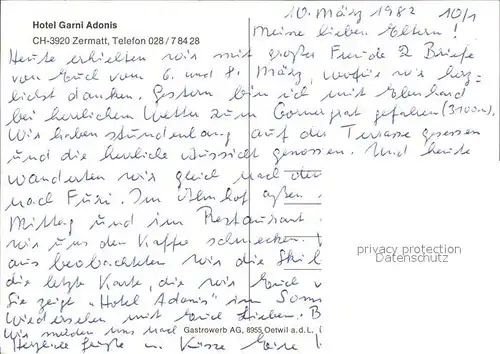 Hotel Garni Adonis
CH-3920 Zermatt, Telefon 028 / 7 84 28
10. März 1982 10/1
Meine lieben Eltern!
Heute erhielten wir mit großer Freude 2 Briefe
von Euch vom 6. und 8. März, wofür wir herz-
lichst danken. Gestern bin ich mit Ekkehard
bei herrlichem Wetter zum Gornergrat gefahren (3100m).
Wir haben stundenlang auf der Terrasse gesessen
und die herrliche Aussicht genossen. Und heute
wanderten wir gleich nach dem
nach Furi. Im
Mittag und im Restaurant
wir uns den Kaffee schmecken.
aus beobachteten wir die Skil
die letzte Karte, die wir Euch
Sie zeigt "Hotel Adonis" im Som
Wiedersehen mit Euch Lieben.
Wir melden uns nach
Herzliche Grüße u. Küsse
privacy protection
Datenschutz
Gastrowerb AG, 8955 Oetwil a.d.L.